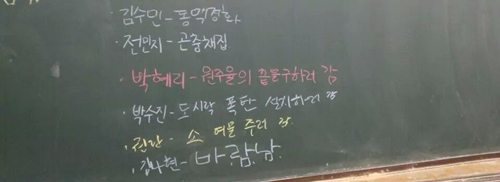 김수민-동맥경화
·전민지-곤충채집
·박혜리-원주율의 출을구하러 감
·박수진-도시락 폭탄 설치하러 감
·권란- 소 여물 주러 감
·김나현-바람남